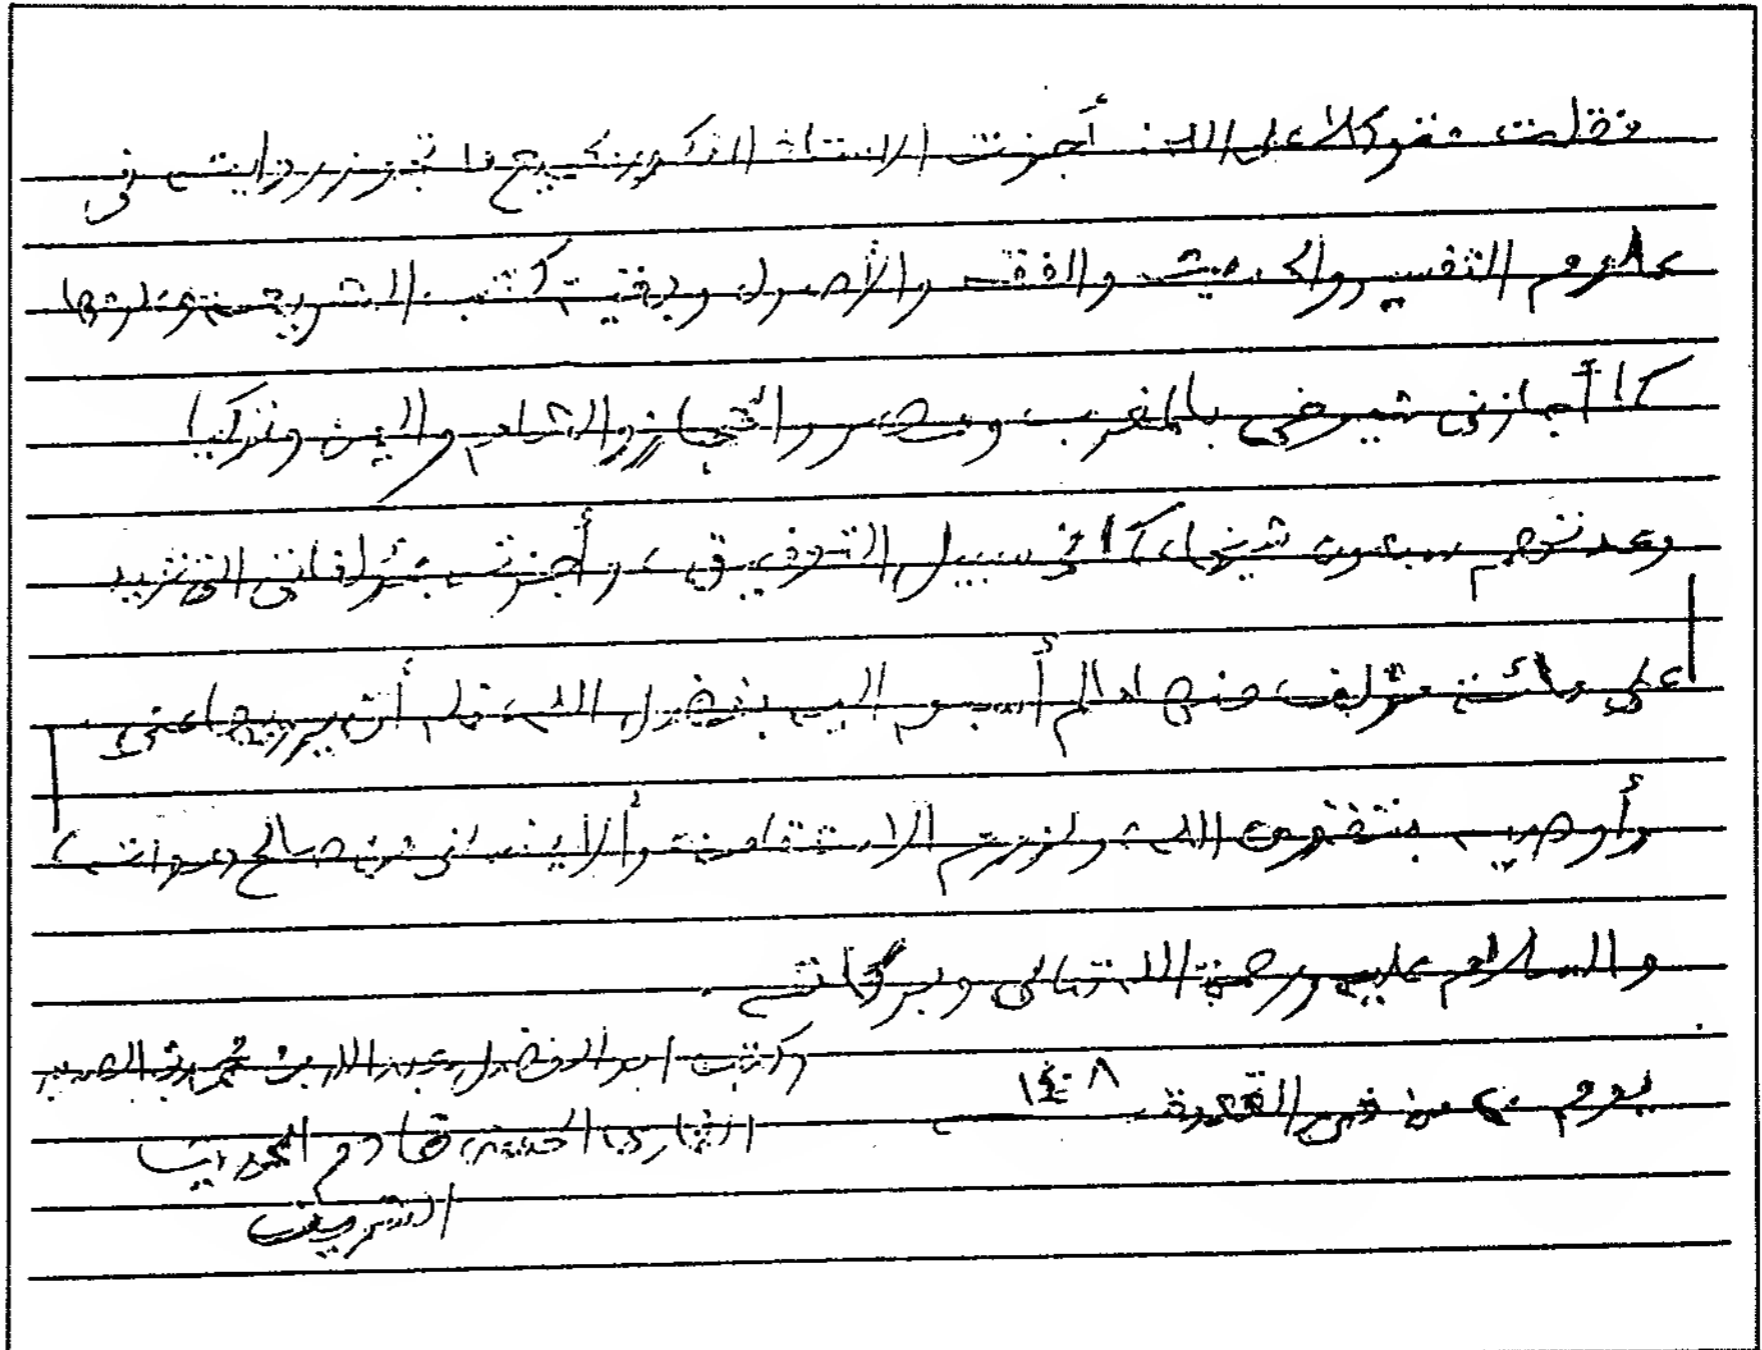 فقلت متوكلا على الله: أجزت الأستاذ المذكور بجميع ما تجوز روايته في
علوم التفسير والحديث والفقه والأصول وبقية كتب الشريعة وعلومها
كما أجازني شيوخي بالمغرب ومصر والحجاز والشام واليمن وتركيا
وعدتهم سبعون شيخا، كما في سبيل التوفيق، وأجزته بمؤلفاتي التي تزيد
على مائة مؤلف، منها ما لم أسبق إليه بفضل الله، فله أن يرويها عني
وأوصيه بتقوى الله، ولزوم الاستقامة وألا ينساني من صالح دعواته،
والسلام عليه ورحمة الله تعالى وبركاته.
وكتب أبو الفضل عبد الله بن محمد بن الصديق
يوم من ذي القعدة ١٤٠٨
الغماري الحسني خادم الحديث
الشريف